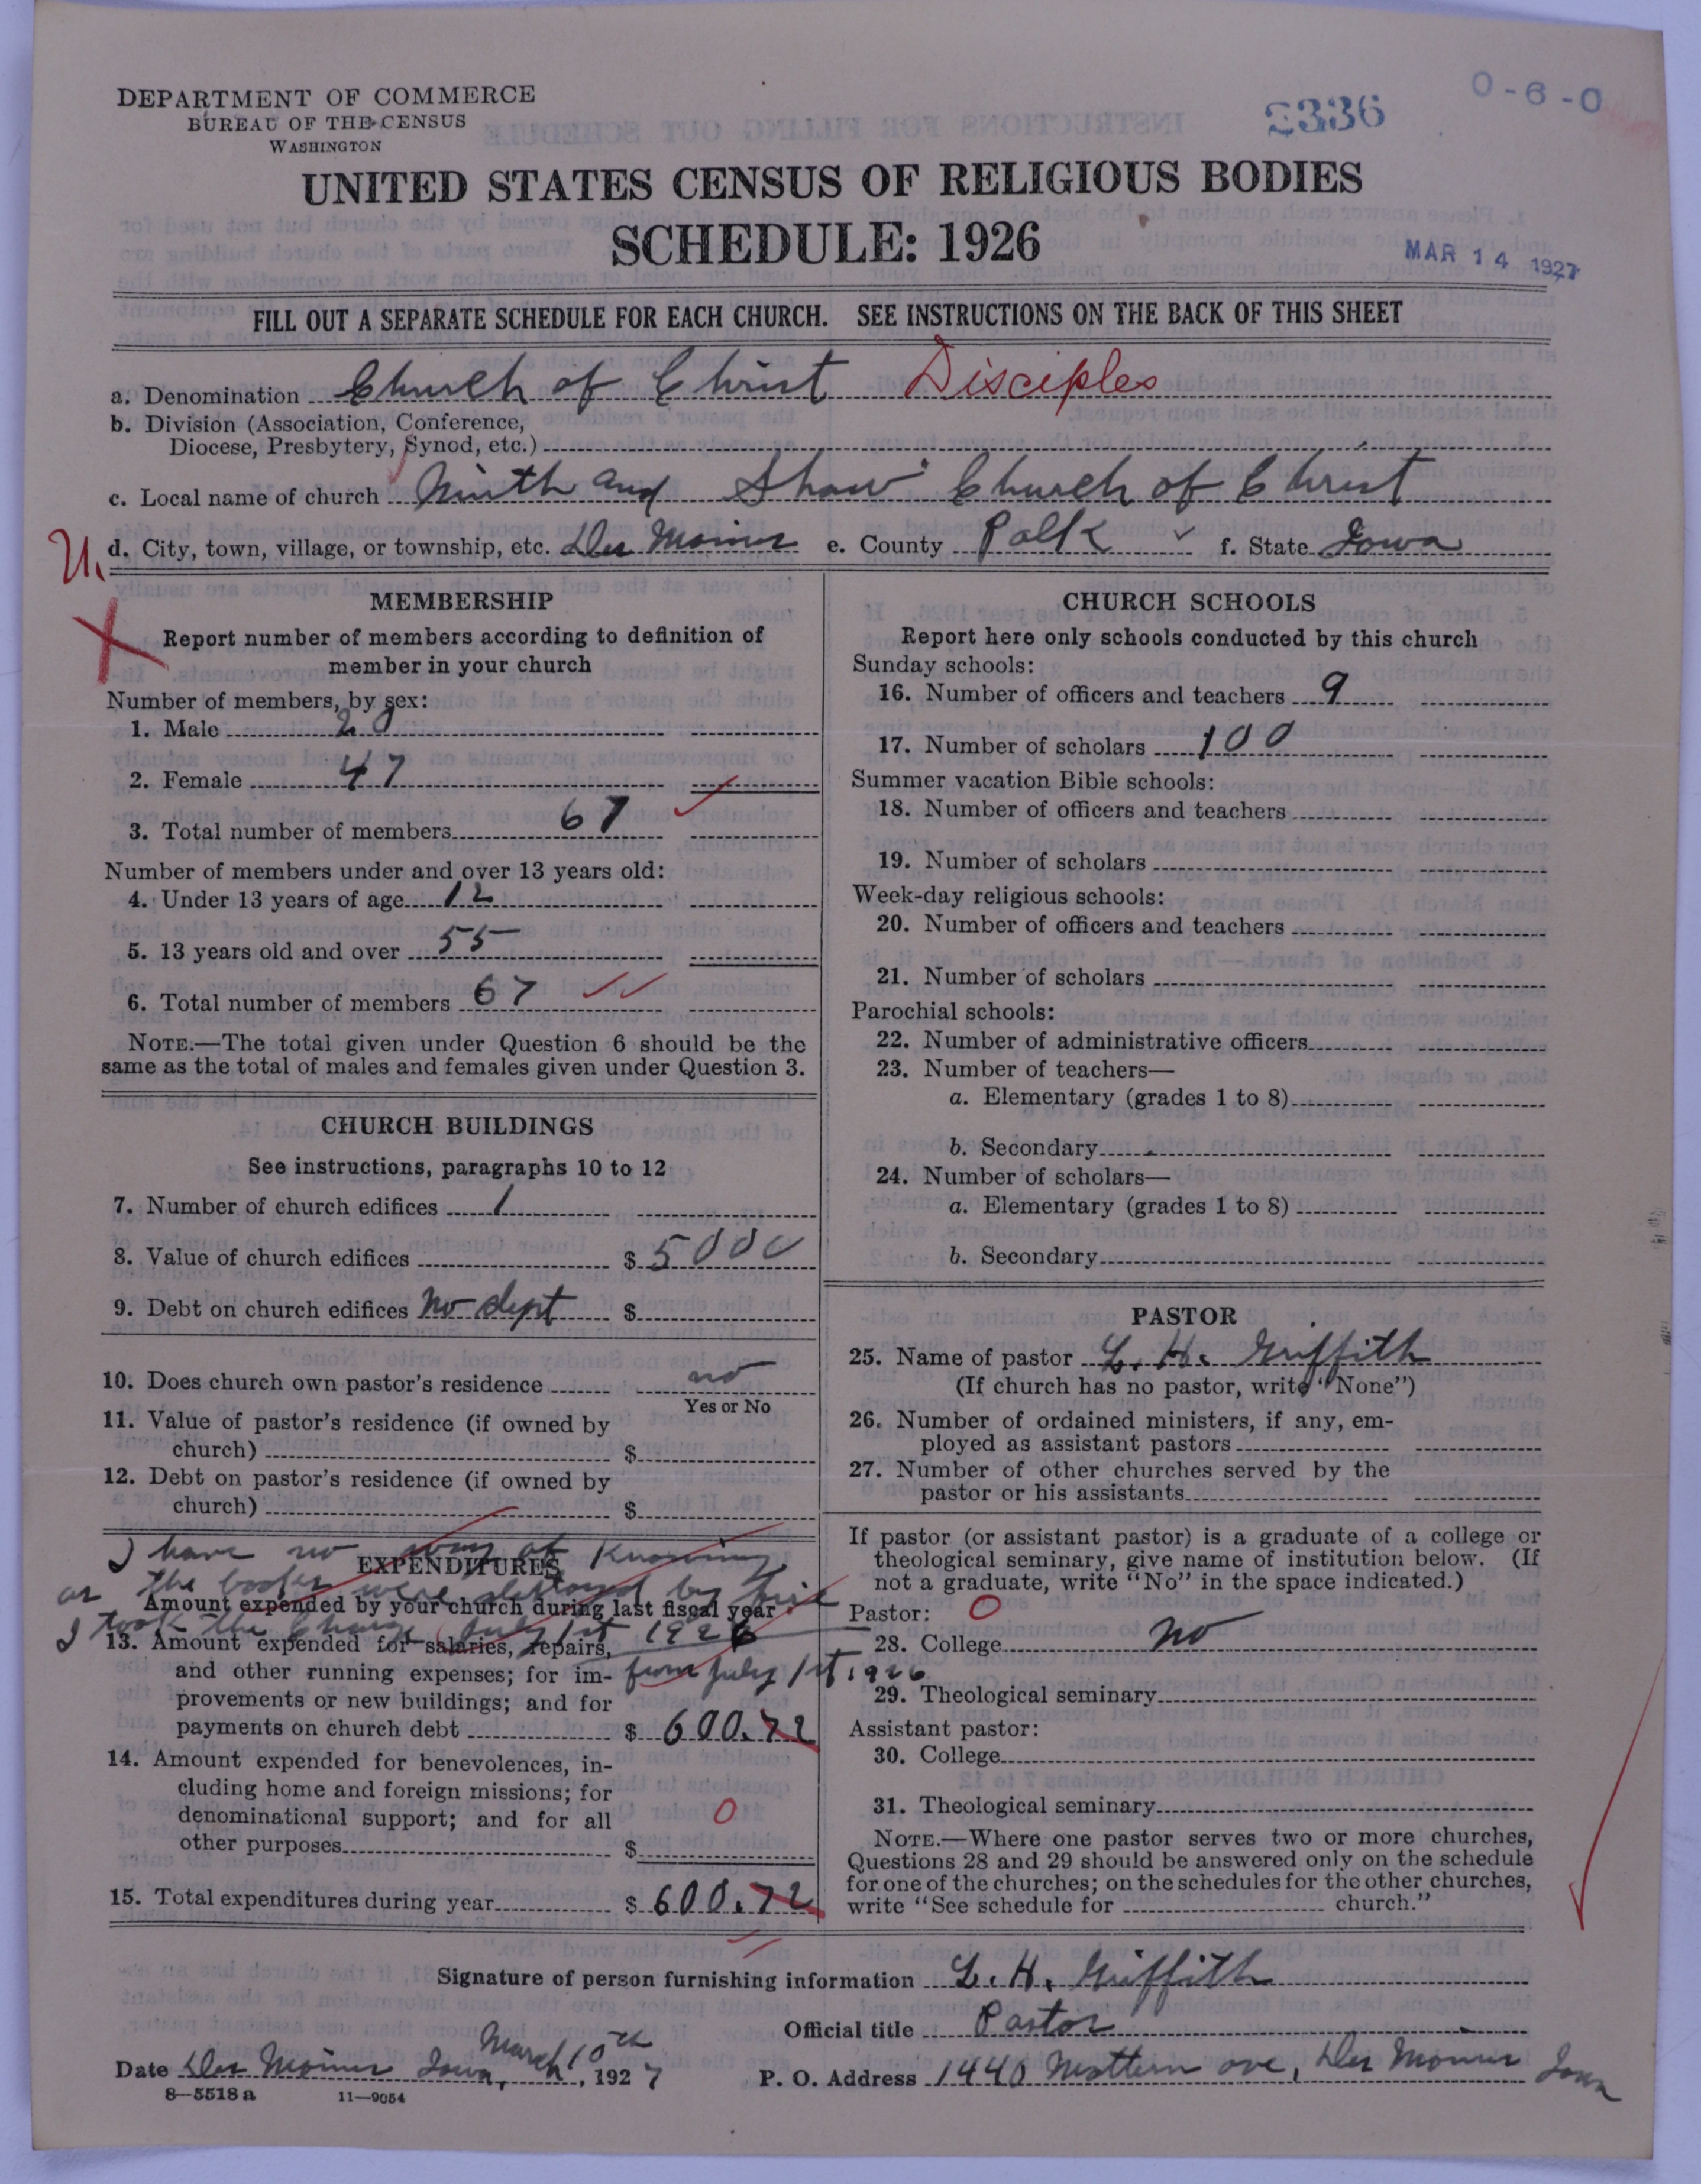 DEPARTMENT OF COMMERCE
BUREAU OF THE CENSUS
WASHINGTON
2336
0-6-0
UNITED STATES CENSUS OF RELIGIOUS BODIES
SCHEDULE: 1926
MAR 14 1927
FILL OUT A SEPARATE SCHEDULE FOR EACH CHURCH. SEE INSTRUCTIONS ON THE BACK OF THIS SHEET
a. Denomination Church of Christ Disciples
b. Division (Association, Conference,
Diocese, Presbytery, Synod, etc.)
c. Local name of church Ninth and Shaw Church of Christ
U. d. City, town, village, or township, etc. Des Moines e. County Polk f. State Iowa
MEMBERSHIP
Report number of members according to definition of
member in your church
Number of members, by sex:
1. Male 20
2. Female 47
3. Total number of members 67
Number of members under and over 13 years old:
4. Under 13 years of age 12
5. 13 years old and over 55
6. Total number of members 67
NOTE.—The total given under Question 6 should be the
same as the total of males and females given under Question 3.
CHURCH BUILDINGS
See instructions, paragraphs 10 to 12
7. Number of church edifices 1
8. Value of church edifices $ 5000
9. Debt on church edifices No dept $
10. Does church own pastor's residence no
Yes or No
11. Value of pastor's residence (if owned by
church) $
12. Debt on pastor's residence (if owned by
church) $
I have no way of Knowing
EXPENDITURES
as the books were destroyed by fire
Amount expended by your church during last fiscal year:
I took the Charge July 1st 1926
13. Amount expended for salaries, repairs,
and other running expenses; for im- from July 1st 1926
provements or new buildings; and for
payments on church debt $ 600.72
14. Amount expended for benevolences, in-
cluding home and foreign missions; for
denominational support; and for all 0
other purposes $
15. Total expenditures during year $ 600.72
CHURCH SCHOOLS
Report here only schools conducted by this church
Sunday schools:
16. Number of officers and teachers 9
17. Number of scholars 100
Summer vacation Bible schools:
18. Number of officers and teachers
19. Number of scholars
Week-day religious schools:
20. Number of officers and teachers
21. Number of scholars
Parochial schools:
22. Number of administrative officers
23. Number of teachers—
a. Elementary (grades 1 to 8)
b. Secondary
24. Number of scholars—
a. Elementary (grades 1 to 8)
b. Secondary
PASTOR
25. Name of pastor L. H. Griffith
(If church has no pastor, write "None")
26. Number of ordained ministers, if any, em-
ployed as assistant pastors
27. Number of other churches served by the
pastor or his assistants
If pastor (or assistant pastor) is a graduate of a college or
theological seminary, give name of institution below. (If
not a graduate, write "No" in the space indicated.)
Pastor: 0
28. College No
29. Theological seminary
Assistant pastor:
30. College
31. Theological seminary
NOTE.—Where one pastor serves two or more churches,
Questions 28 and 29 should be answered only on the schedule
for one of the churches; on the schedules for the other churches,
write "See schedule for church."
Signature of person furnishing information L. H. Griffith
Official title Pastor
Date Des Moines Iowa, March 10th, 1927
P. O. Address 1440 Mattern ave, Des Moines Iowa
8—5518 a 11—9054